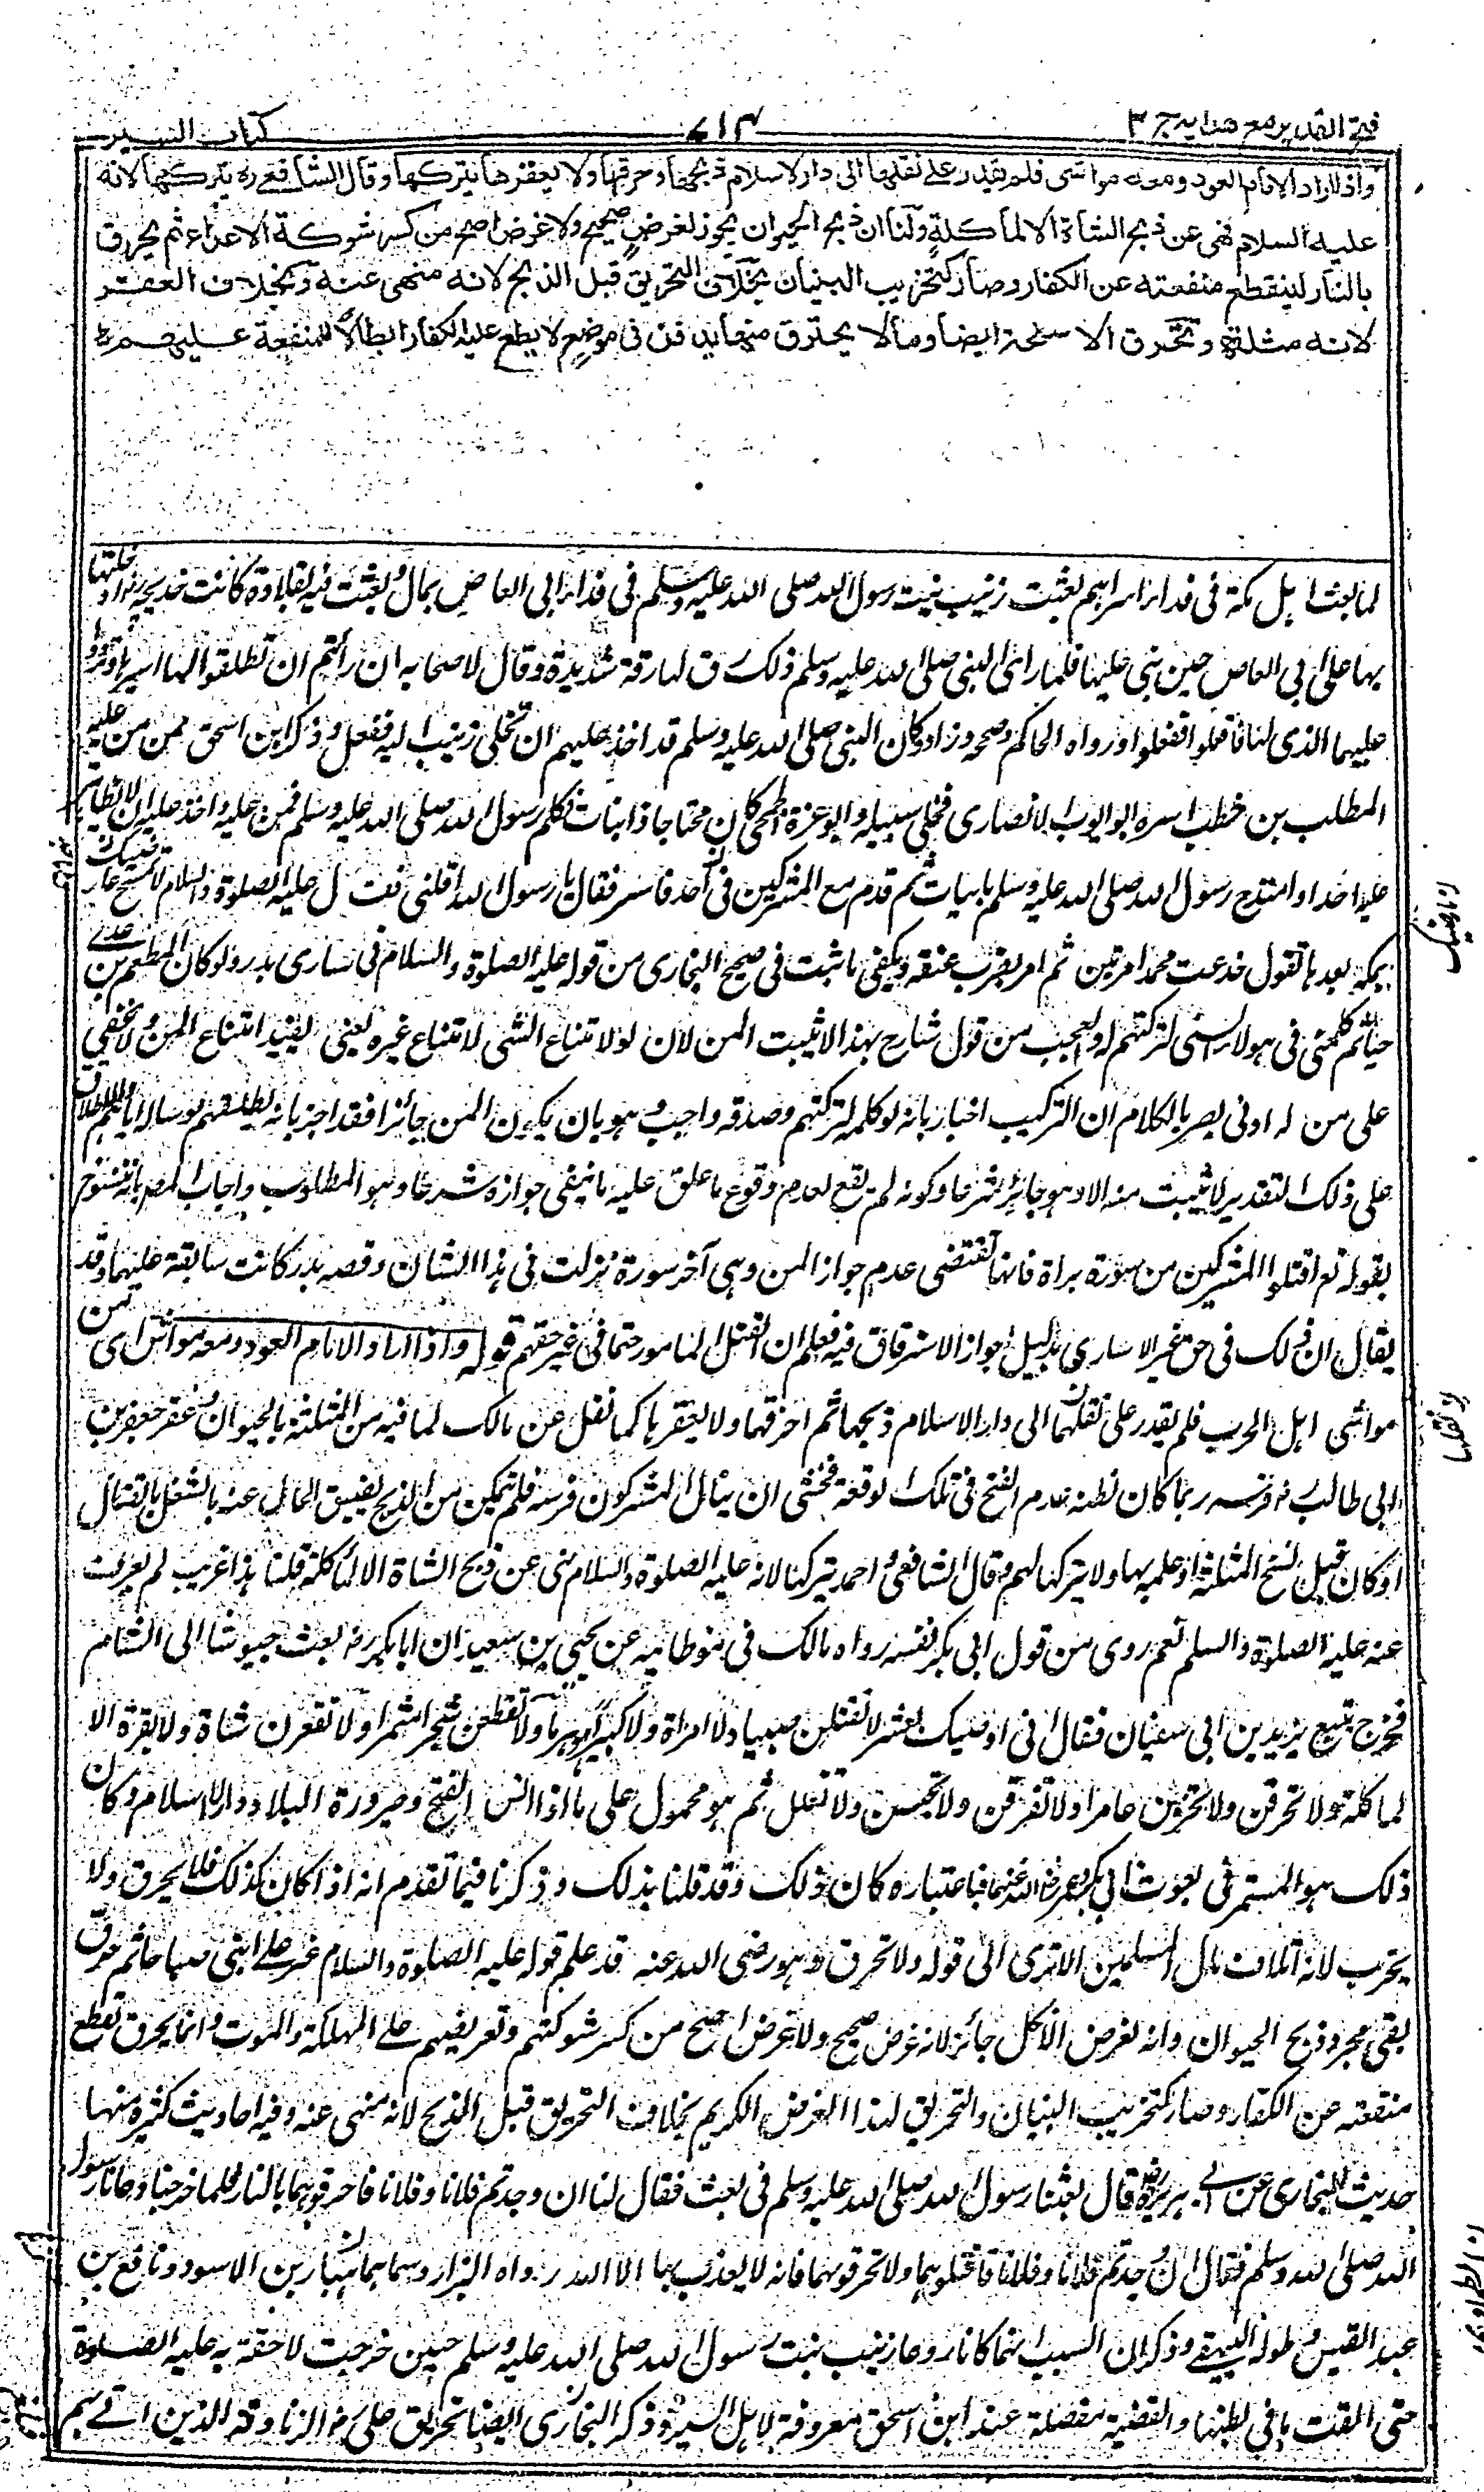 فتح القدير مع هدايه ج ٣
٧١٣
كتاب السير
واذا اراد الامام العود ومعه مواشي فلم يقدر على نقلها الى دار الاسلام ذبحها وحرقها ولا يعقرها ولا يتركها وقال الشافعي ره يتركها لانه
عليه السلام نهى عن ذبح الشاة الا لمأكلة ولنا ان ذبح الحيوان يجوز لغرض صحيح ولا غرض اصح من كسر شوكة الاعداء ثم يحرق
بالنار لينقطع منفعته عن الكفار وصار كتخريب البنيان بخلاف التحريق قبل الذبح لانه منهى عنه وبخلاف العقر
لانه مثلة وتحرق الاسلحة ايضا وما لا يحترق منها يدفن فى موضع لا يطلع عليه الكفار ابطالا للمنفعة عليهم
لما بعث اهل مكة فى فداء اسراهم بعثت زينب بنت رسول الله صلى الله عليه وسلم فى فداء ابى العاص بمال وبعثت فيه بقلادة كانت خديجة رضى ادخلتها
بها على ابى العاص حين بنى عليها فلما راى النبى صلى الله عليه وسلم ذلك رق لها رقة شديدة وقال لاصحابه ان رأيتم ان تطلقوا لها اسيرها وتردوا
عليها الذى لها فافعلوا ففعلوا ورواه الحاكم وصححه وزاد وكان النبى صلى الله عليه وسلم قد اخذ عليه ان يخلى زينب اليه ففعل وذكر ابن اسحق ممن من عليه
المطلب بن حنطب اسره ابو ايوب الانصارى فخلى سبيله وابو عزة الجمحى كان محتاجا ذا بنات فكلم رسول الله صلى الله عليه وسلم فمن عليه واخذ عليه ان لا يظاهر
عليه احدا وامتدح رسول الله صلى الله عليه وسلم بابيات ثم قدم مع المشركين فى احد فاسر فقال يا رسول الله اقلنى فقال عليه الصلوة والسلام لا تمسح عارضيك
بمكة بعدها تقول خدعت محمدا مرتين ثم امر بضرب عنقه ويكفى ما ثبت فى صحيح البخارى من قوله عليه الصلوة والسلام فى اسارى بدر ولو كان المطعم بن عدى
حيا ثم كلمنى فى هؤلاء النتنى لتركتهم له والعجب من قول شارح بهذا لا يثبت المن لان لو لامتناع الشى لامتناع غيره يعنى يفيد امتناع المن ولا يخفى
على من له ادنى بصر بالكلام ان التركيب اخبار بانه لو كلمه لتركهم وصدقه واجب وهو بان يكون المن جائزا فقد اخبر بانه يطلقهم لو ساله اياهم والاطلاق
على ذلك التقدير لا يثبت منه الا وهو جائز شرعا وكونه لم يقع لعدم وقوع ما علق عليه لا ينفى جوازه شرعا وهو المطلوب واجاب المص بانه منسوخ
بقوله تع اقتلوا المشركين من سورة براءة فانها تقتضى عدم جواز المن وهى آخر سورة نزلت فى هذا الشان وقصه بدر كانت سابقة عليها وقد
يقال ان ذلك فى حق غير الاسارى بدليل جواز الاسترقاق فيه فعلم ان القتل المامور حتما فى غير حقهم قوله واذا اراد الامام العود ومعه مواش اى من
مواشى اهل الحرب فلم يقدر على نقلها الى دار الاسلام ذبحها ثم احرقها ولا يعقرها كما نقل عن مالك لما فيه من المثلة بالحيوان وعقر جعفر بن
ابى طالب رضى فرسه ربما كان لظنه عدم الفتح فى تلك الوقعة فخشى ان ينال المشركون فرسه فلم يتمكن من الذبح لضيق الحال عنه بالشغل بالقتال
او كان قبل نسخ المثلة او علمه بها ولا يتركها لهم وقال الشافعى واحمد يتركها لانه عليه الصلوة والسلام نهى عن ذبح الشاة الا لمأكلة قلنا هذا غريب لم يعرف
عنه عليه الصلوة والسلام نعم روى من قول ابى بكر نفسه رواه مالك فى موطائه عن يحيى بن سعيد ان ابا بكر رضى بعث جيوشا الى الشام
فخرج يتبع يزيد بن ابى سفيان فقال انى اوصيك بعشر لا تقتلن صبيا ولا امراة ولا كبيرا هرما ولا تقطعن شجرا مثمرا ولا تعقرن شاة ولا بقرة الا
لماكلة ولا تحرقن ولا تخربن عامرا ولا تفرقن ولا تجبنن ولا تغلل ثم هو محمول على ما اذا انس الفتح وصيرورة البلاد دار الاسلام وكان
ذلك هو المستمر فى بعوث ابى بكر وعمر رضى الله عنهما فباعتباره كان ذلك وقد قلنا بذلك وذكرنا فيما تقدم انه اذا كان كذلك فلا يحرق ولا
يخرب لانه اتلاف مال المسلمين الا ترى الى قوله ولا تحرق وهو رضى الله عنه قد علم قوله عليه الصلوة والسلام اغر على ابنى صباحا ثم حرق
بقى مجرد ذبح الحيوان وانه لغرض الاكل جائز لانه غرض صحيح ولا غرض اصح من كسر شوكتهم وتعريضهم على المهلكة والموت وانما يحرق لقطع
منفعته عن الكفار وصار كتخريب البنيان والتحريق لهذا الغرض الكريم بخلاف التحريق قبل الذبح لانه منهى عنه وفيه احاديث كثيره منها
حديث البخارى عن ابى هريرة رض قال بعثنا رسول الله صلى الله عليه وسلم فى بعث فقال لنا ان وجدتم فلانا وفلانا فاحرقوهما بالنار فلما خرجنا دعانا رسول
الله صلى الله وسلم فقال ان وجدتم فلانا وفلانا فاقتلوهما ولا تحرقوهما فانه لا يعذب بها الا الله رواه البزار وسماهما هبار بن الاسود ونافع بن
عبد القيس وطوله البيهقى وذكر ان السبب انهما كانا روعا زينب بنت رسول الله صلى الله عليه وسلم حين خرجت لاحقة به عليه الصلوة
حتى القت ما فى بطنها والقضية مفصلة عند ابن اسحق معروفة لاهل السير وذكر البخارى ايضا تحريق على رضى الزنادقة الذين اتى بهم